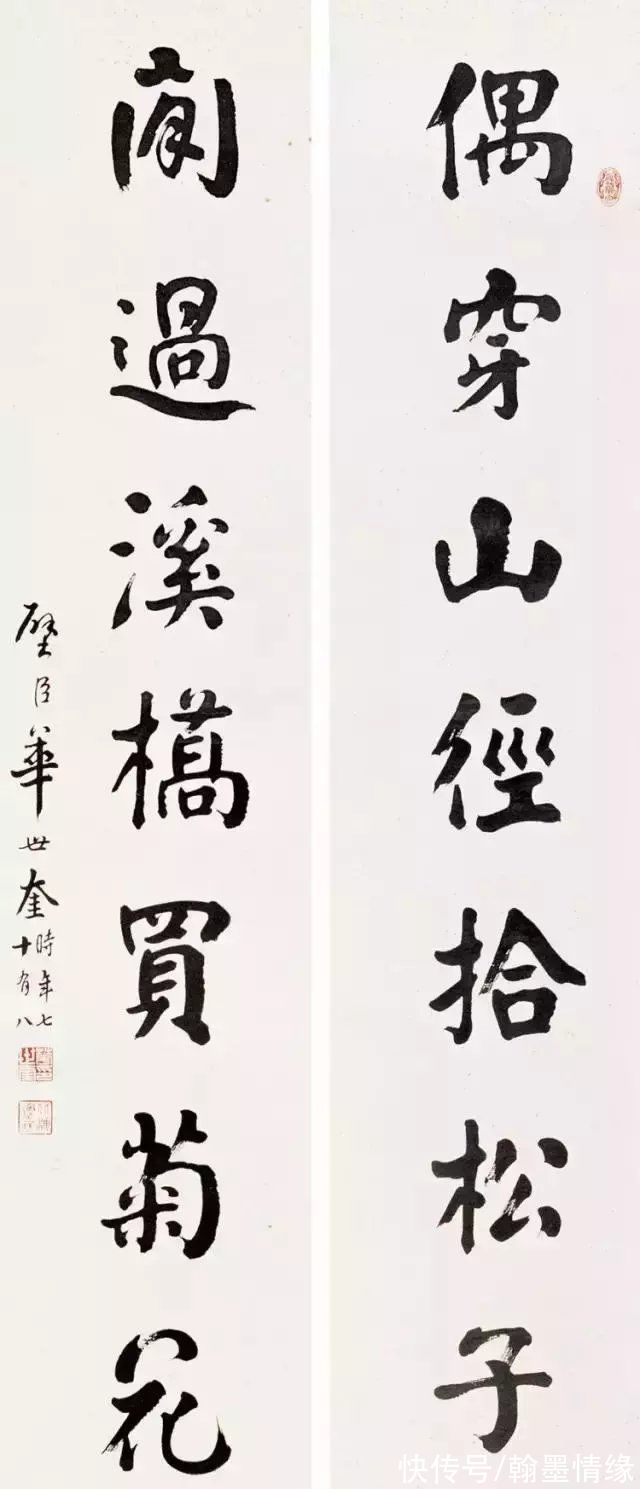 偶穿山徑拾松子
閒過溪橋買菊花
璧臣華世奎時年七
十有八
快传号/翰墨情缘